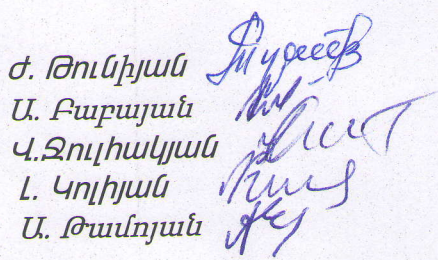 Ժ. Թունիյան
Ա. Բաբայան
Վ.Ջուլհակյան
Լ. Կոլիյան
Ա. Թամոյան